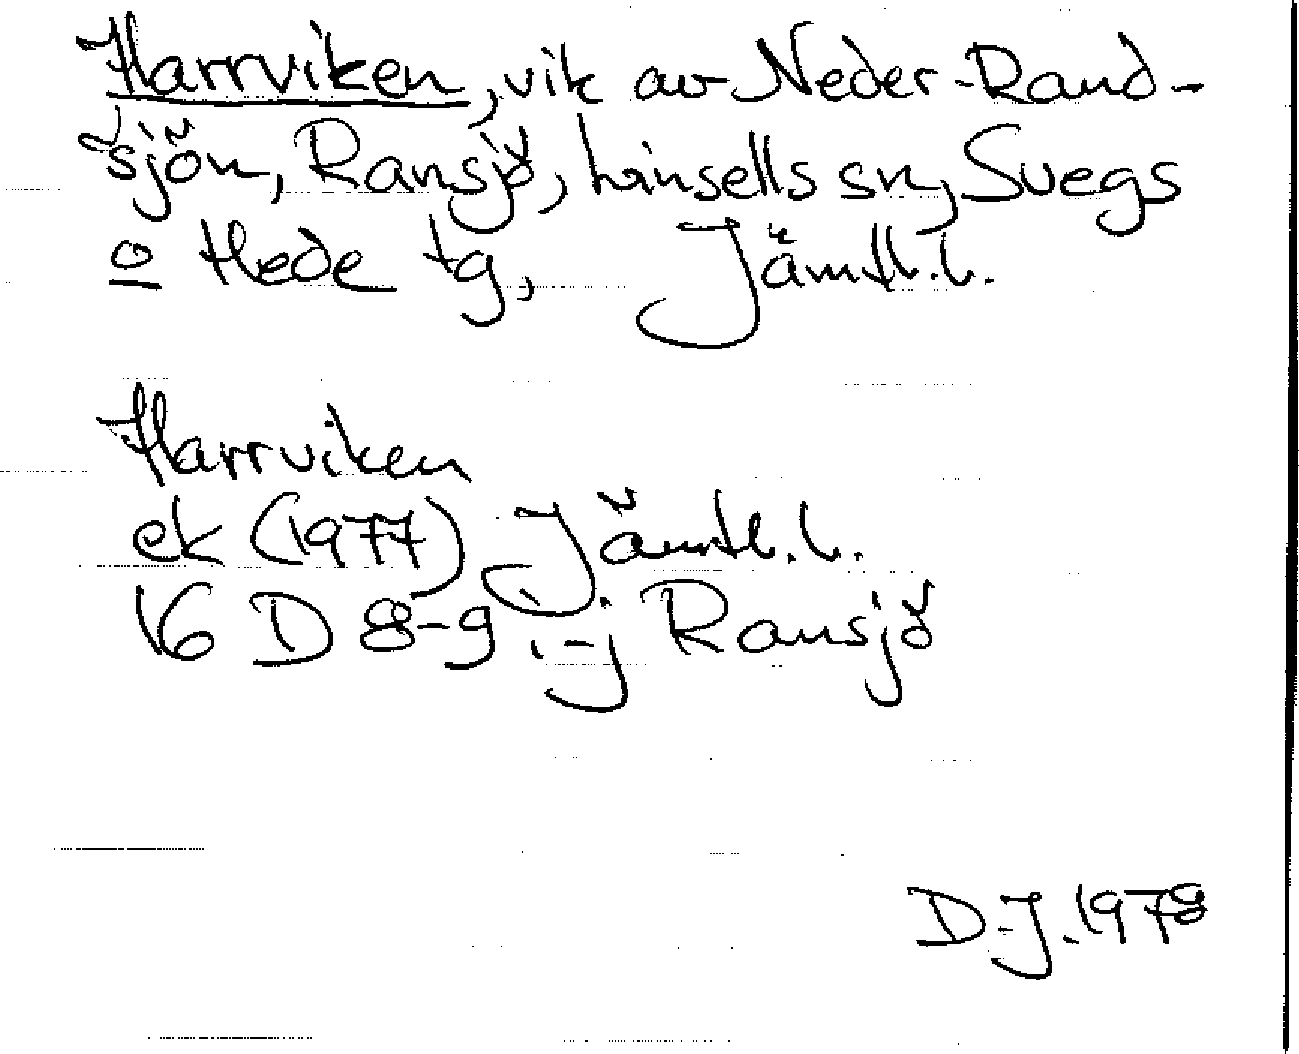 Harrviken, vik av Neder-Rand-
sjön, Ransjö, Linsells sn, Svegs
o Hede tg, Jämtl.l.
Harrviken
ek (1977) Jämtl.l.
16 D 8-9 i-j Ransjö
D-J.1978